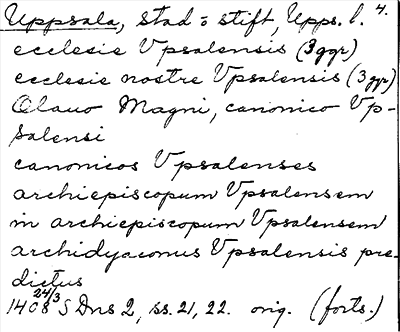 Uppsala, stad o stift, Upps. l. 4.
ecclesie Vpsalensis (3 ggr)
ecclesie nostre Vpsalensis (3 ggr)
Olauo Magni, canonico Vp-
salensi
canonicos Vpsalenses
archiepiscopum Vpsalensem
in archiepiscopum Vpsalensem
archidyaconus Vpsalensis pre-
dictus
1408 24/3 SDns 2, ss. 21, 22. orig. (forts.)